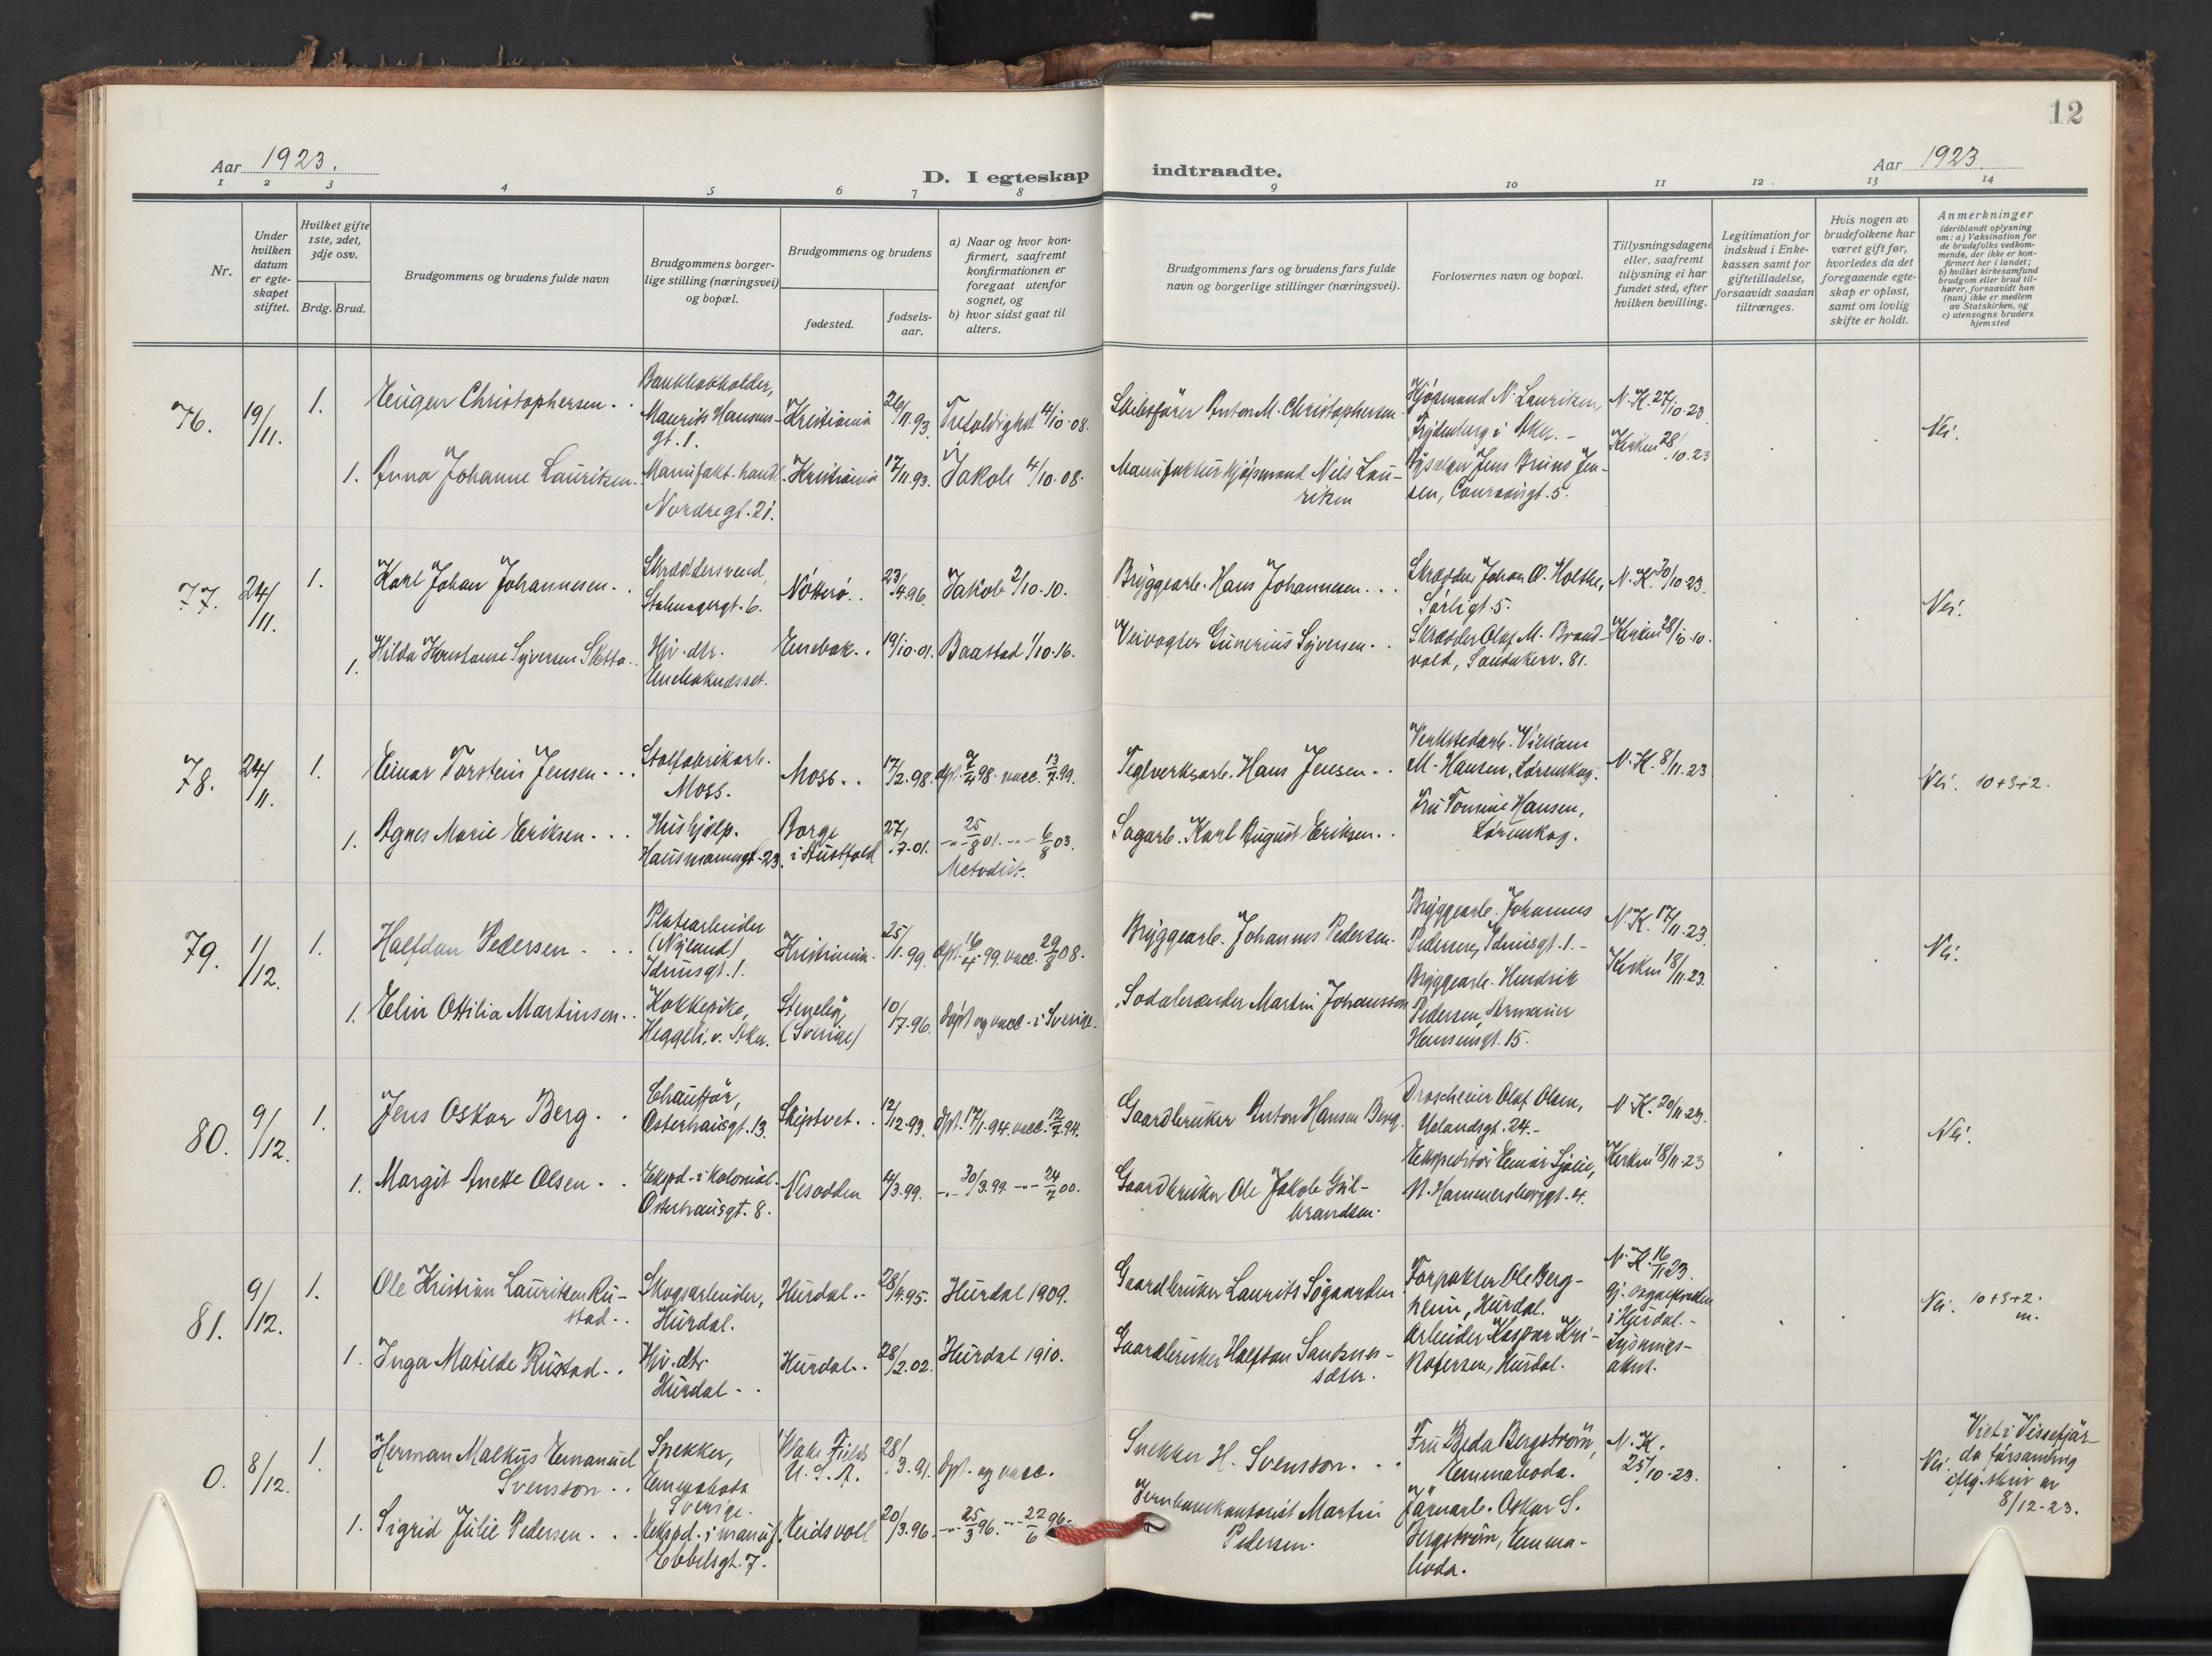 12
Aar 1923.
D. I egteskap
indtraadte.
Aar 1923.
1 2 3 4 5 6 7 8 9 10 11 12 13 14
Nr.
Under hvilken datum er egteskapet stiftet.
Hvilket gifte 1ste, 2det, 3dje osv.
Brdg. Brud.
Brudgommens og brudens fulde navn
Brudgommens borgerlige stilling (næringsvei) og bopæl.
Brudgommens og brudens
fødested.
fødselsaar.
a) Naar og hvor konfirmert, saafremt konfirmationen er foregaat utenfor sognet, og
b) hvor sidst gaat til alters.
Brudgommens fars og brudens fars fulde navn og borgerlige stillinger (næringsvei).
Forlovernes navn og bopæl.
Tillysningsdagene eller, saafremt tillysning ei har fundet sted, efter hvilken bevilling.
Legitimation for indskud i Enkekassen samt for giftetilladelse, forsaavidt saadan tiltrænges.
Hvis nogen av brudefolkene har været gift før, hvorledes da det foregaaende egteskap er opløst, samt om lovlig skifte er holdt.
Anmerkninger
(deriblandt oplysning om: a) Vaksination for de brudefolks vedkommende, der ikke er konfirmert her i landet;
b) hvilket kirkesamfund brudgom eller brud tilhører, forsaavidt han (hun) ikke er medlem av Statskirken, og
c) utensogns bruders hjemsted
76. 19/11. 1. Eugen Christophersen. Bankbokholder, Maurits Hansens gt. 1. Kristiania 26/11.93. Trefoldighet 4/10.08. Skibsfører Anton M. Christophersen. Kjøpmand N. Lauritzen, Frydenberg i Aker. N.K. 27/10.23 Nei.
1. Anna Johanne Lauritzen. Manufakt. handl. Nordregt. 21. Kristiania 17/11.93. Jakob 4/10.08. Manufakturkjøpmand Nils Lauritzen Jens Bruns Jensen, Conradisgt. 5. Kirken 28/10.23
77. 24/11. 1. Karl Johan Johannesen. Skræddersvend, 6. Nøtterø. 23/4.96. Jakob 2/10.10. Bryggearb. Hans Johannesen. Skrædder Johan A. Holthe, Sørligt. 5. N.K. 30/10.23. Nei.
1. Hilda Konstanse Syversen Sletta. Hjv. dtr. Enebakneset. Enebak. 19/10.01. Baastad 1/10.16. Veivogter Gunerius Syversen. Skrædder Olaf M. Brandvold, Sandakerv. 81. Kirken 28/10.10.
78. 24/11. 1. Einar Torstein Jensen. Stolfabrikarb. Moss. Moss. 17/2.98. døpt. 9/4 98. vacc. 13/7 99. Teglverksarb. Hans Jensen. Verkstedarb. William M. Hansen, Lørenskog. N.K. 8/11.23 Nei. 10+3+2.
1. Agnes Marie Eriksen. Hushjælp. Hausmannsgt. 23. Borge i Østfold 27/7.01. 25/8 01. 6/8 03. Metodist. Sagarb. Karl August Eriksen. Fru Tomine Hansen, Lørenskog.
79. 1/12. 1. Halfdan Pedersen. Platearbeider (Nyland) Idunsgt. 1. Kristiania. 25/1.99. døpt. 16/4 99. vacc. 29/8 08. Bryggearb. Johannes Pedersen. Bryggearb. Johannes Pedersen, Idunsgt. 1. N.K. 17/11.23. Nei.
1. Elin Ottilia Martinsen. Kokkepike, Heggeli, v. Aker. (Sverige) 10/7.96. døpt og vacc. i Sverige. Martin Johansson Bryggearb. Hendrik Pedersen, Armauer Hansensgt. 15. Kirken 18/11.23.
80. 9/12. 1. Jens Oskar Berg. Chauffør, Osterhausgt. 13. Skiptvet. 12/12.93. døpt. 17/1.94. vacc. 12/7 94. Gaardbruker Anton Hansen Berg. Droscheeier Olaf Olsen, Uelandsgt. 24. N.K. 20/11.23. Nei.
1. Margit Anette Olsen. Ekspd. i Kolonial. Osterhausgt. 8. Nesodden 4/3.99. 30/3.99. 24/7 00. Gaardbruker Ole Jakob Gulbrandsen. Ekspeditør Einar Sjølie, N. Hammersborggt. 4. Kirken 18/11.23
81. 9/12. 1. Ole Kristian Lauritzen Rustad. Skogsarbeider, Hurdal. Hurdal. 28/4.95. Hurdal 1909. Gaardbruker Laurits Søgaarden Forpakter Ole Bergheim, Hurdal. N.K. 16/11 23. i Hurdal. Lysningsattest. Nei. 10+3+2. m.
1. Inga Matilde Rustad. Hjv. dtr. Hurdal. Hurdal. 28/2.02. Hurdal 1910. Gaardbruker Halfdan Arbeider Kaspar Kristofersen, Hurdal.
0. 8/12. 1. Herman Malkus Emanuel Svensson. Snekker, Emmaboda Sverige. Wake Fields U.S.A. 28/3.91. døpt. og vacc. Snekker H. Svensson. Fru Beda Bergström, Emmaboda. N.K. 25/10.23. Nei. Viet i Vissefjärda församling iflg. skriv av 8/12-23.
1. Sigrid Julie Pedersen. Ekspd. i manuf. Ebbelsgt. 7. Eidsvoll 20/3.96. 25/3 96. 22/6 96. Jernbanekontorist Martin Pedersen. Järnarb. Oskar S. Bergström, Emmaboda.